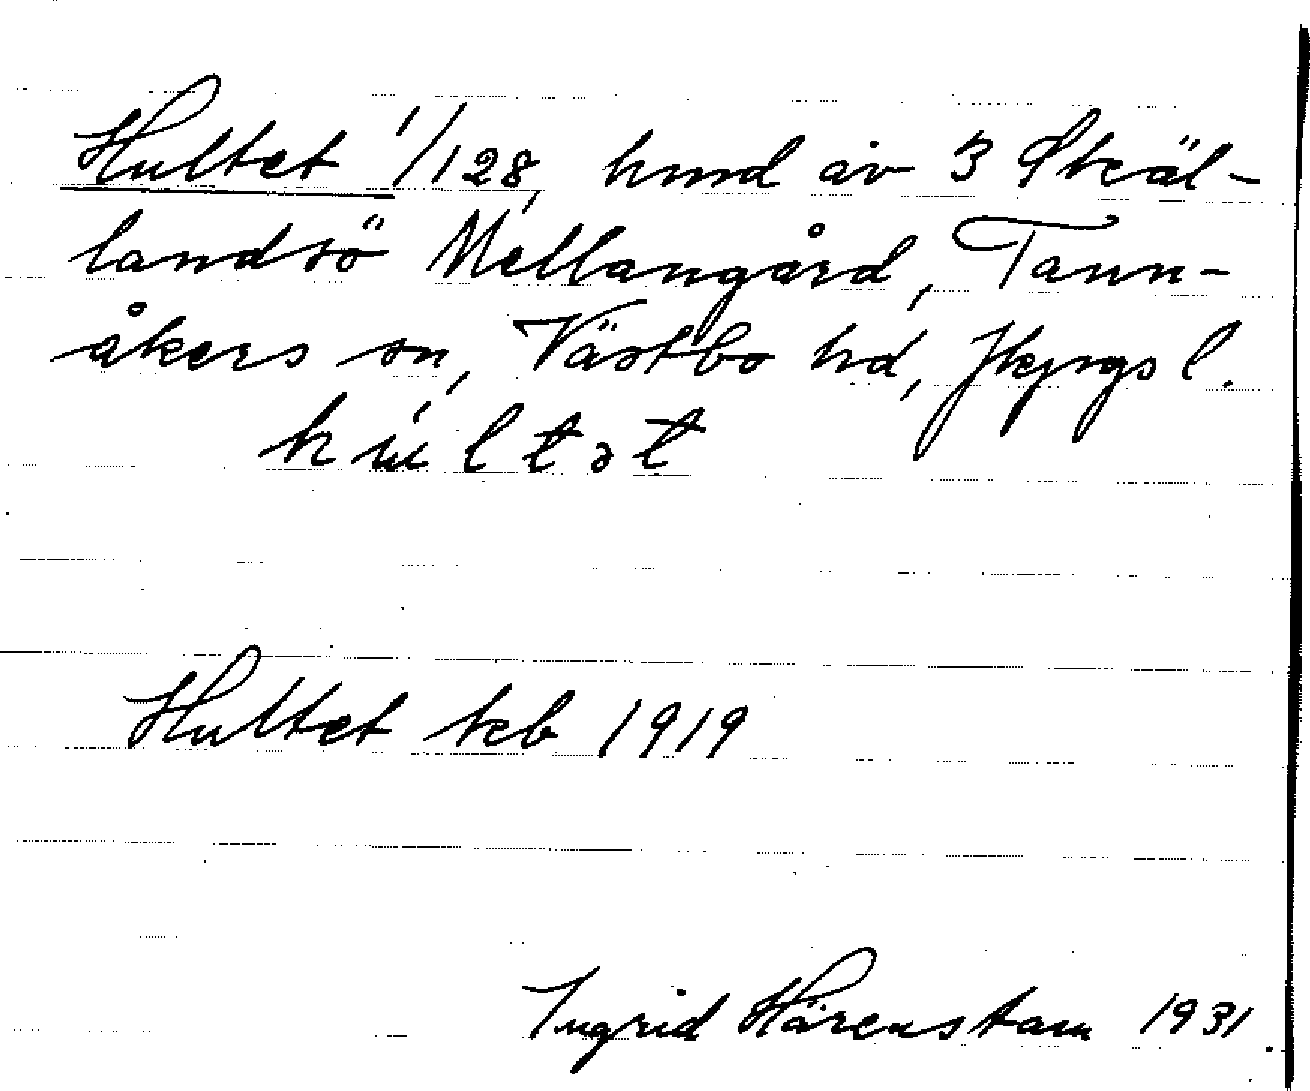 Hultet 1/128, hmd av 3 Skäl-
landsö Mellangård, Tann-
åkers sn, Västbo hd, Jkpgs l.
húltət
Hultet kb 1919
Ingrid Härenstam 1931.